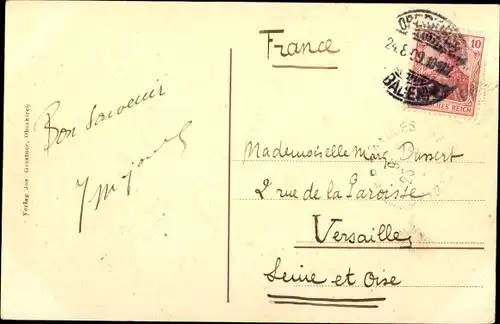 France
10
24.8.09.
BADEN
DEUTSCHES REICH
Bon Souvenir
Mademoiselle Marg Dussert
2 rue de la Paroisse
Versailles
Seine et Oise
Verlag Jos. Oberkirch